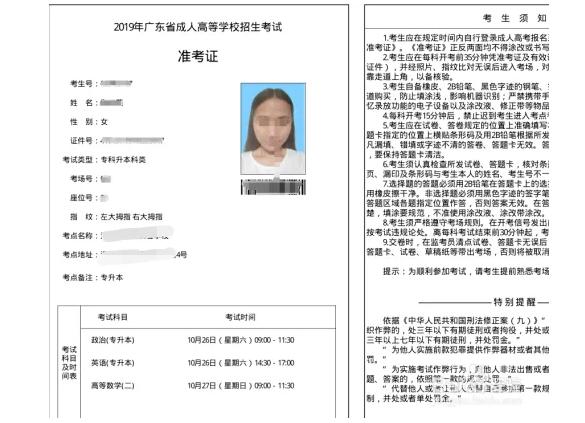 2019年广东省成人高等学校招生考试
准考证
考生号：
姓 名：
性 别：女
证件号：
考试科类：专科升本科类
考场号：
座位号：
指 纹：左大拇指 右大拇指
考点名称：
考点地址： 4号
考点备注：专升本
考试科目及时间表
考试科目 考试时间
政治(专升本) 10月26日（星期六）09:00 - 11:30
英语(专升本) 10月26日（星期六）14:30 - 17:00
高等数学(二) 10月27日（星期日）09:00 - 11:30
考 生 须 知
1.考生应在规定时间内自行登录成人高考报名系
准考证》。《准考证》正反两面均不得涂改或书写
2.考生应在每科开考前35分钟凭准考证及有效
证件），并经照片、指纹比对无误后进入考场，对
靠走道上角，以备核验。
3.考生自备橡皮、2B铅笔、黑色字迹的钢笔、签
道购买，防止填涂浅，影响机器识别；严禁携带手
忆录放功能的电子设备以及涂改液、修正带等物品
4.每科开考15分钟后，禁止迟到考生进入考点
5.考生应在试卷、答卷规定的位置上准确填写
题卡指定的位置上横贴条形码及用2B铅笔根据所
凡漏填、错填或字迹不清的答卷、答题卡无效。答
，要保持答题卡清洁。
6.考生须认真检查所发试卷、答题卡，核对条
页、漏印及条形码与考生本人的姓名、考生号不一
7.选择题的答题必须用2B铅笔在答题卡上的选
用橡皮擦干净。非选择题必须用黑色字迹的签字笔
答题区域各题指定位置作答，否则答案无效。在答
楚，填涂要规范，不准使用涂改液、涂改带涂改。
8.考生须严格遵守考场规则。在开考信号发出
按考试违规论处。离每科考试结束前30分钟起，考
9.交卷时，在监考员清点试卷、答题卡无误后
答题卡、试卷、草稿纸等带出考场，否则将被取消
提示：为顺利参加考试，请考生提前熟悉考场
特别提醒
依据《中华人民共和国刑法修正案（九）》“
织作弊的，处三年以下有期徒刑或者拘役，并处或
三年以上七年以下有期徒刑，并处罚金。”
“ 为他人实施前款犯罪提供作弊器材或者其他
罚。”
“ 为实施考试作弊行为，向他人非法出售或者
题、答案的，依照第一款的规定处罚。”
“ 代替他人或者让他人代替自己参加第一款规
制，并处或者单处罚金。”